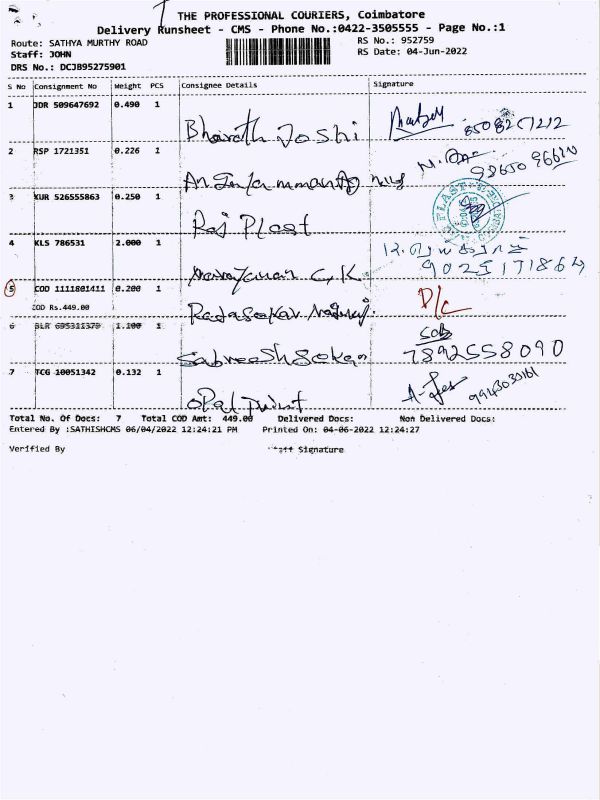 THE PROFESSIONAL COURIERS, Coimbatore
Delivery Runsheet - CMS - Phone No.:0422-3505555 - Page No.:1
Route: SATHYA MURTHY ROAD RS No.: 952759
Staff: JOHN RS Date: 04-Jun-2022
DRS No.: DCJB95275901
S No Consignment No Weight PCS Consignee Details Signature
1 JDR 509647692 0.490 1
Bharath Joshi 8508257212
2 RSP 1721351 0.226 1
3 KUR 526555863 0.250 1
Raj Plast
4 KLS 786531 2.000 1
Narayanan C.K 9025171864
5 COD 1111801411 0.200 1
COD Rs.449.00
Rajasekar D/c
6 BLR 695311379 1.100 1
7892558090
7 TCG 10051342 0.132 1
Opal print
Total No. Of Docs: 7 Total COD Amt: 449.00 Delivered Docs: Non Delivered Docs:
Entered By :SATHISHCMS 06/04/2022 12:24:21 PM Printed On: 04-06-2022 12:24:27
Verified By Staff Signature